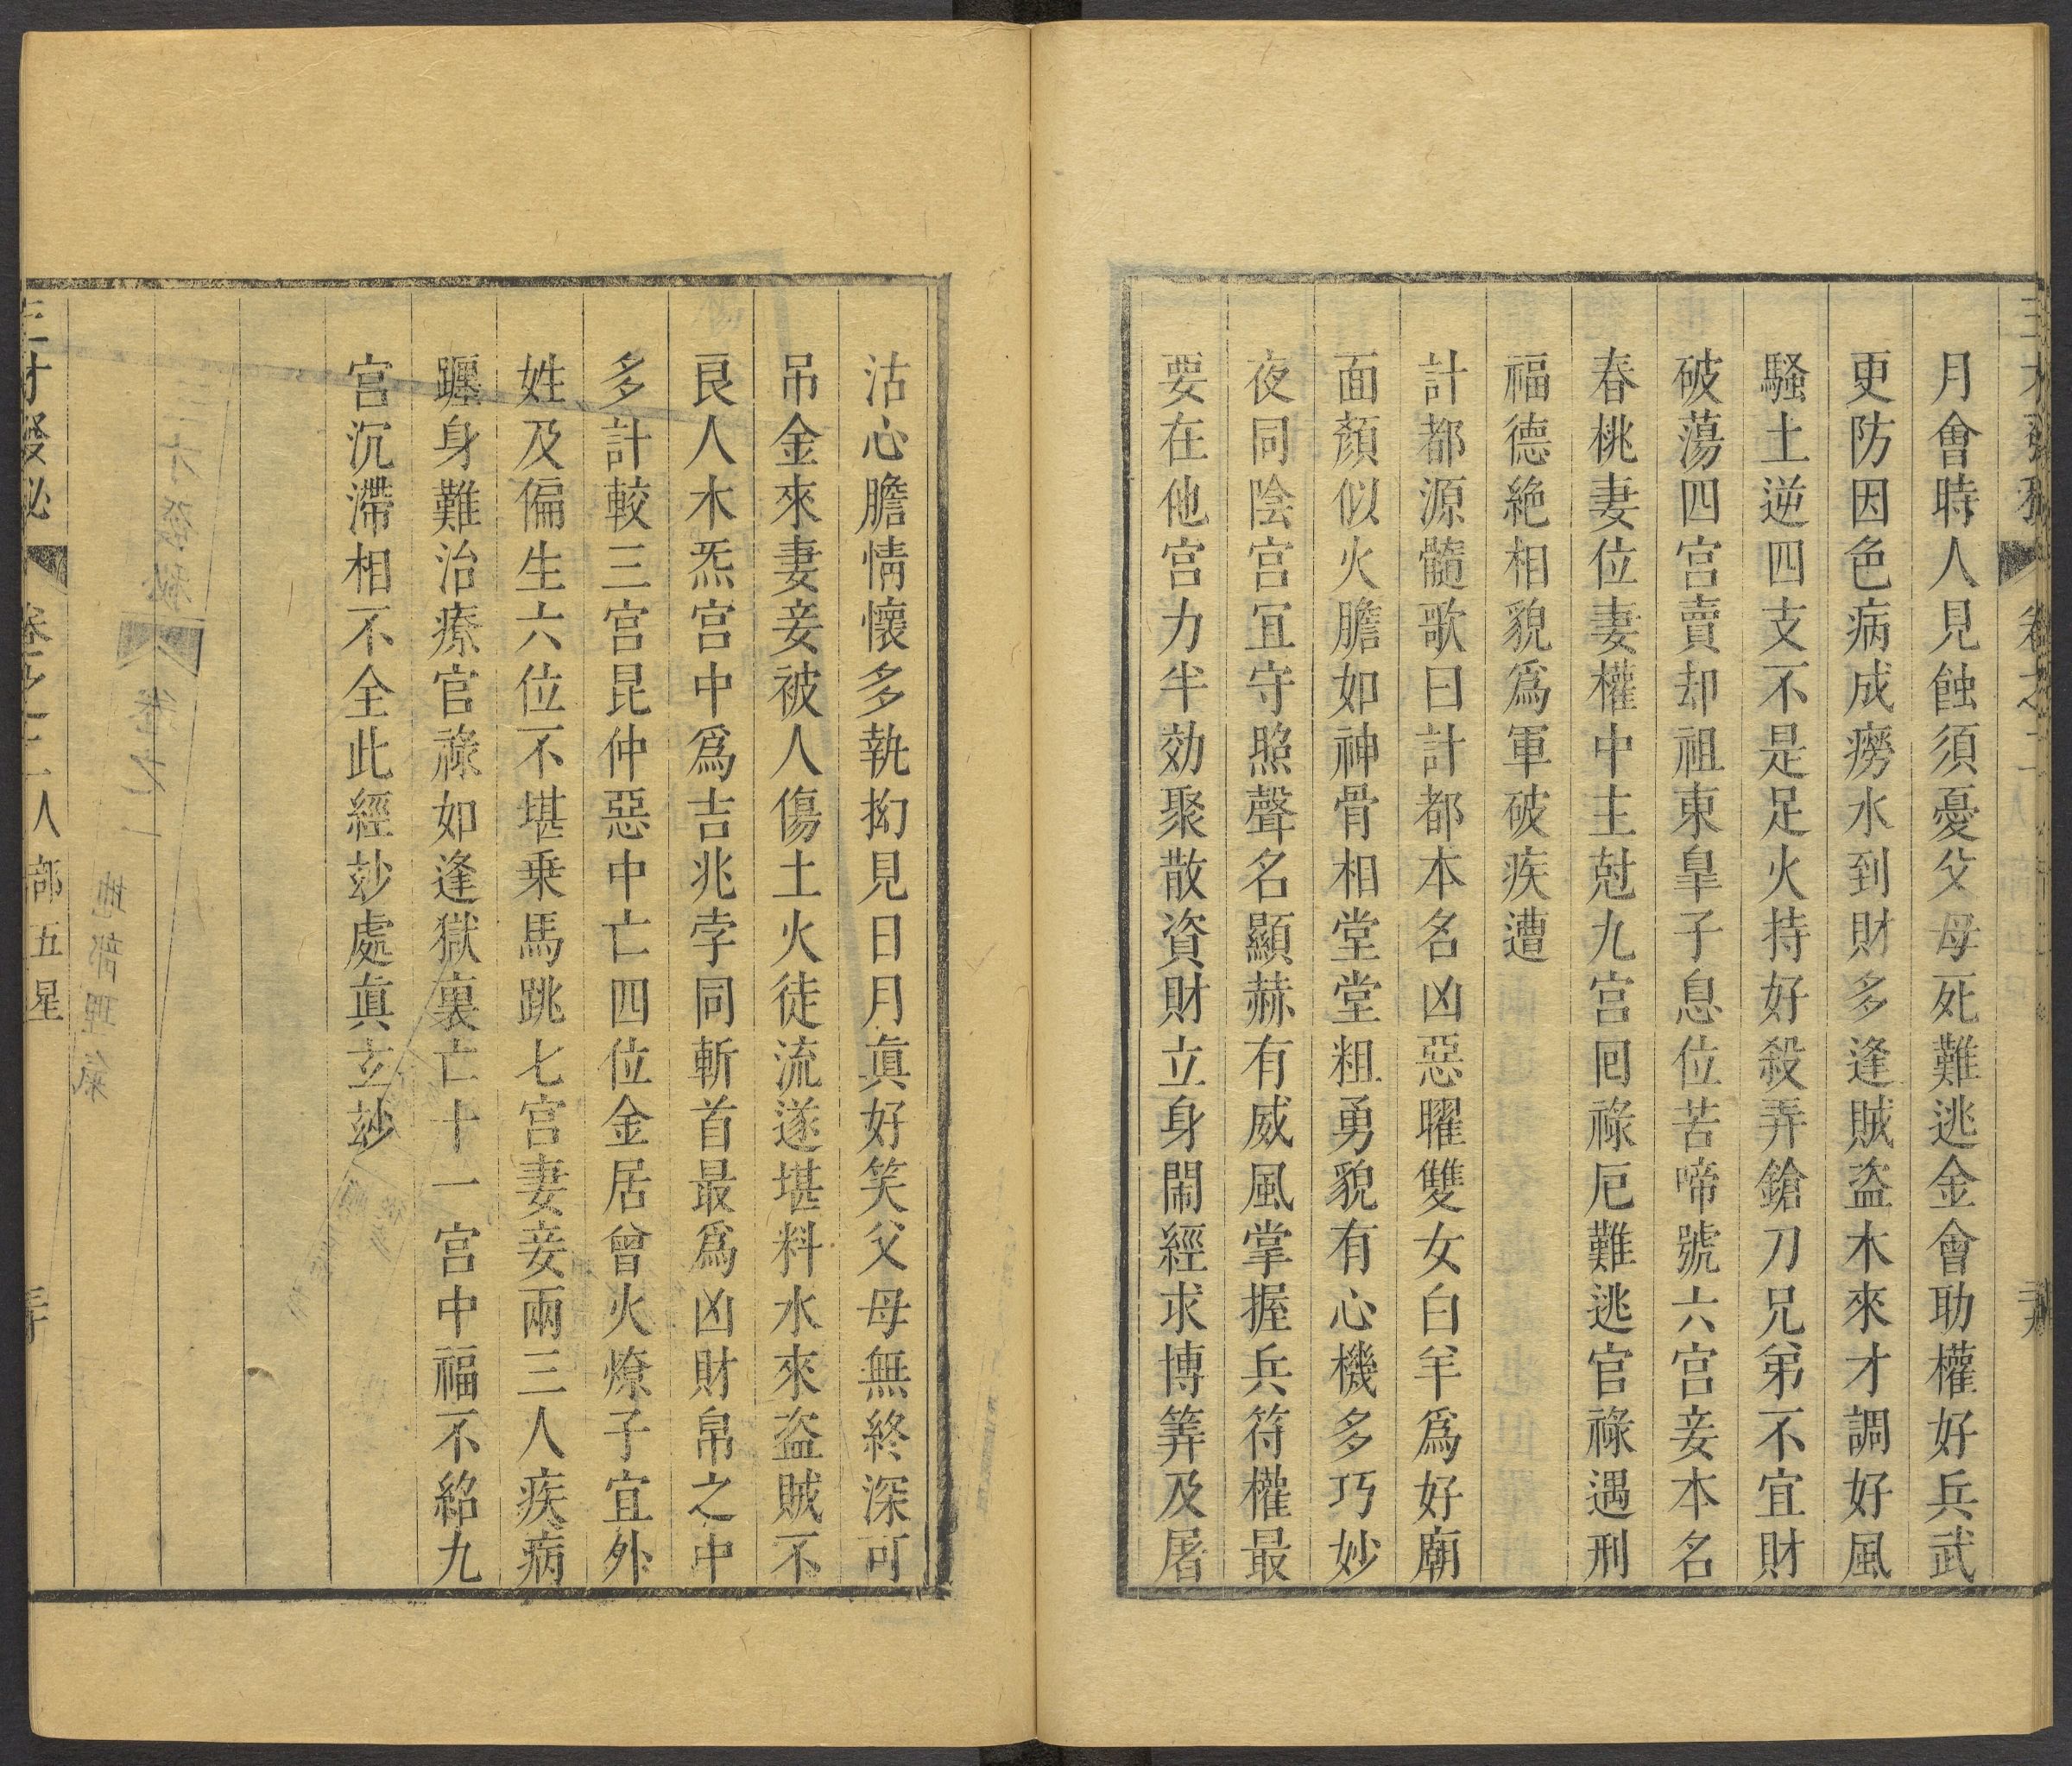 月會時人見蝕須憂父母死難逃金會助權好兵武
更防因色病成癆水到財多逢賊盜木來才調好風
騷土逆四支不是足火持好殺弄鎗刀兄弟不宜財
破蕩四宫賣却祖東皐子息位苦啼號六宫妾本名
春桃妻位妻權中主尅九宫囘祿厄難逃官祿遇刑
福德絶相貌爲軍破疾遭
計都源髓歌曰計都本名凶惡曜雙女白羊爲好廟
面顏似火膽如神骨相堂堂粗勇貌有心機多巧妙
夜同陰宫冝守照聲名顯赫有威風掌握兵符權最
要在他宫力半効聚散資財立身閙經求博筭及屠
沽心膽情懷多執拗見日月眞好笑父母無終深可
吊金來妻妾被人傷土火徒流遂堪料水來盜賊不
良人木炁宫中爲吉兆孛同斬首最爲凶財帛之中
多計較三宫昆仲惡中亡四位金居曾火燎子宜外
姓及偏生六位不堪乗馬跳七宫妻妾兩三人疾病
躔身難治療官祿如逢獄裏亡十一宫中福不紹九
宫沉滯相不全此經玅處眞玄玅
三才發秘 卷之二 人部五星